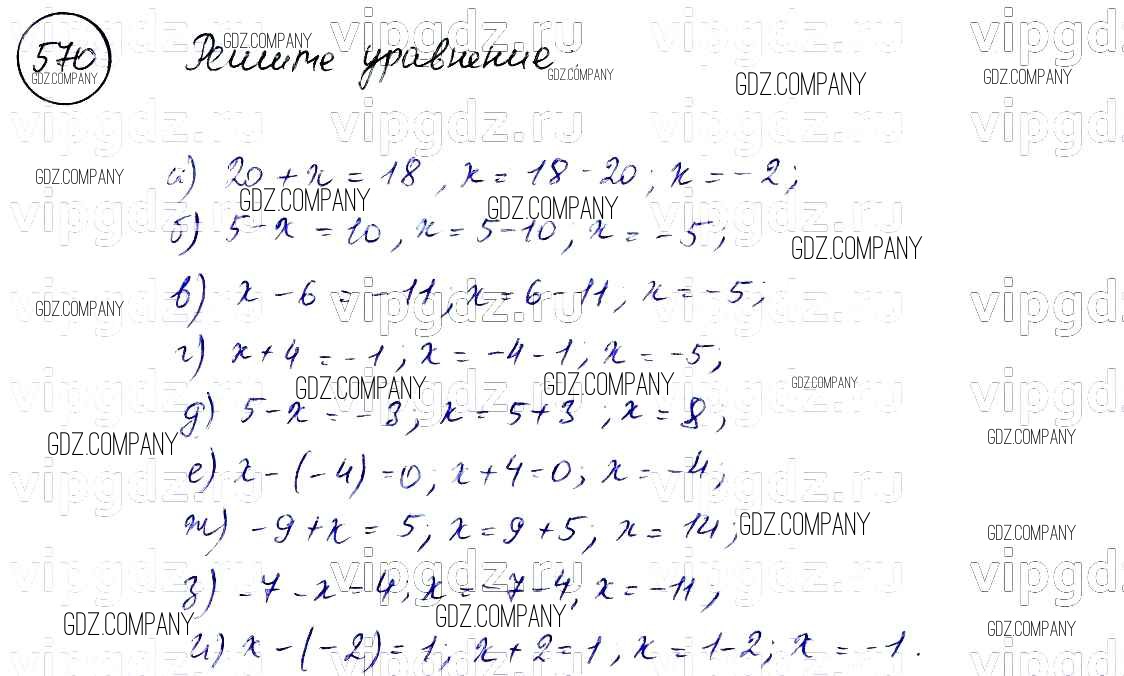 570 Решите уравнение
а) 20 + x = 18, x = 18 - 20; x = -2;
б) 5 - x = 10, x = 5 - 10, x = -5;
в) x - 6 = -11, x = 6 - 11, x = -5;
г) x + 4 = -1; x = -4 - 1; x = -5;
д) 5 - x = -3; x = 5 + 3, x = 8,
е) x - (-4) = 0; x + 4 = 0; x = -4;
ж) -9 + x = 5; x = 9 + 5; x = 14;
з) -7 - x = 4; x = -7 - 4, x = -11,
и) x - (-2) = 1; x + 2 = 1, x = 1 - 2; x = -1.
vipgdz.ru
GDZ.COMPANY